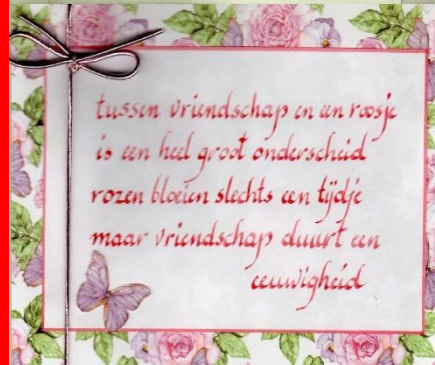 tussen vriendschap en een roosje
is een heel groot onderscheid
rozen bloeien slechts een tijdje
maar vriendschap duurt een
eeuwigheid